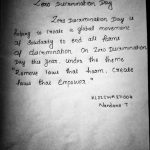 Zero Discrimination Day
Zero Discrimination Day is
helping to create a global movement
of solidarity to end all forms
of discrimination. On Zero Discrimination
Day this year, under the theme
"Remove laws that harm, create
laws that Empower".
Nandana T